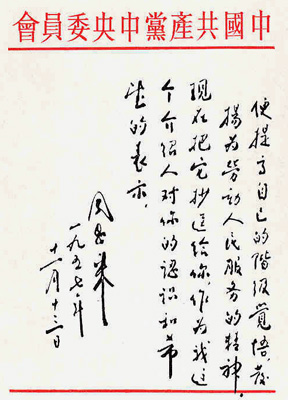 中國共產黨中央委員會
便提高自己的階級覺悟，發
揚为勞动人民服务的精神。
現在把它抄送给你，作为我这
个介紹人对你的認識和希
望的表示。
周恩来
一九五七年
十一月十三日